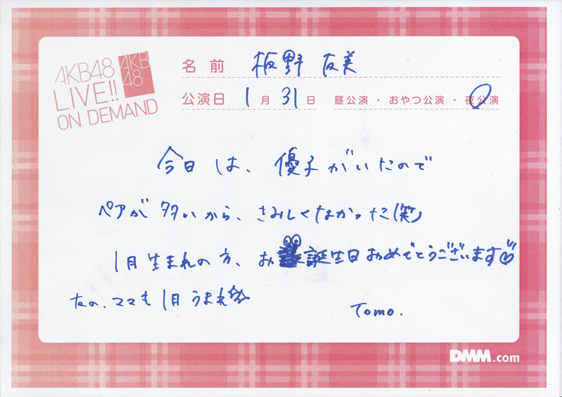 AKB48
LIVE!!
ON DEMAND
AKB
48
名前 板野友美
公演日 1月31日 昼公演・おやつ公演・夜公演
今日は、優子がいたので
ペアが多いから、さみしくなかった(笑)
1月生まれの方、お誕生日おめでとうございます♡
友の、ママも1月うまれ☆
Tomo.
DMM.com